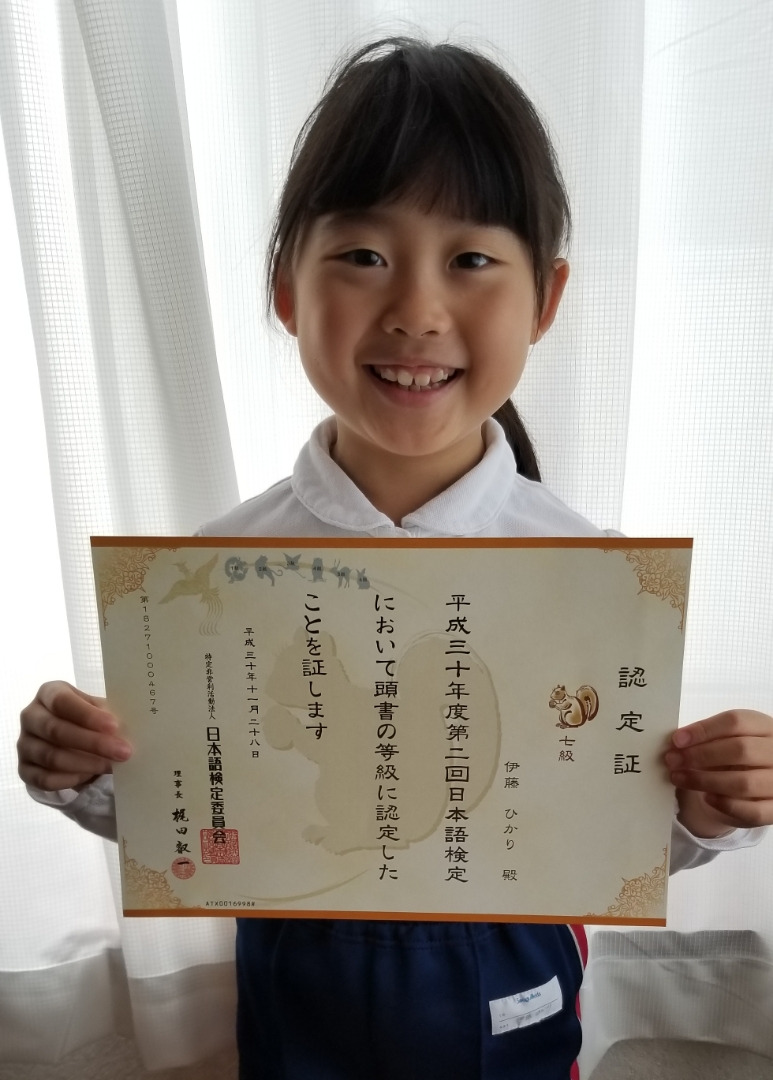 認定証
七級
伊藤 ひかり 殿
平成三十年度第二回日本語検定
において頭書の等級に認定した
ことを証します
平成三十年十一月二十八日
特定非営利活動法人 日本語検定委員会
理事長 梶田叡一
第18271000467号
ATX0016998#